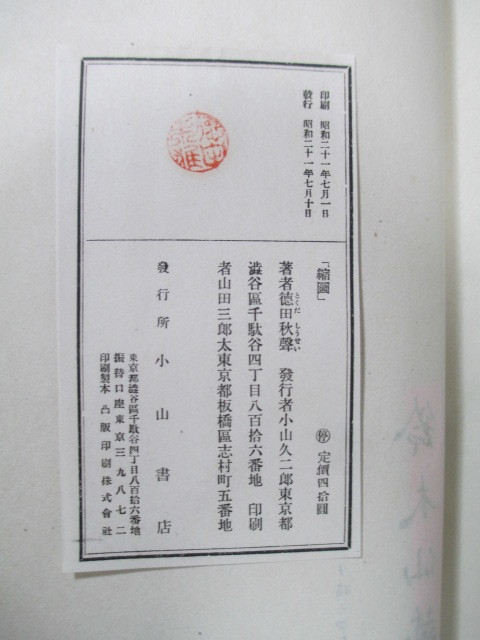 印刷 昭和二十一年七月一日
發行 昭和二十一年七月十日
「縮圖」
㊕ 定價四拾圓
著者德田秋聲 發行者小山久二郎東京都
とくだ しうせい
澁谷區千駄谷四丁目八百拾六番地 印刷
者山田三郎太東京都板橋區志村町五番地
發行所 小山書店
東京都澁谷區千駄谷四丁目八百拾六番地
振替口座東京三九八七二
印刷製本 凸版印刷株式會社